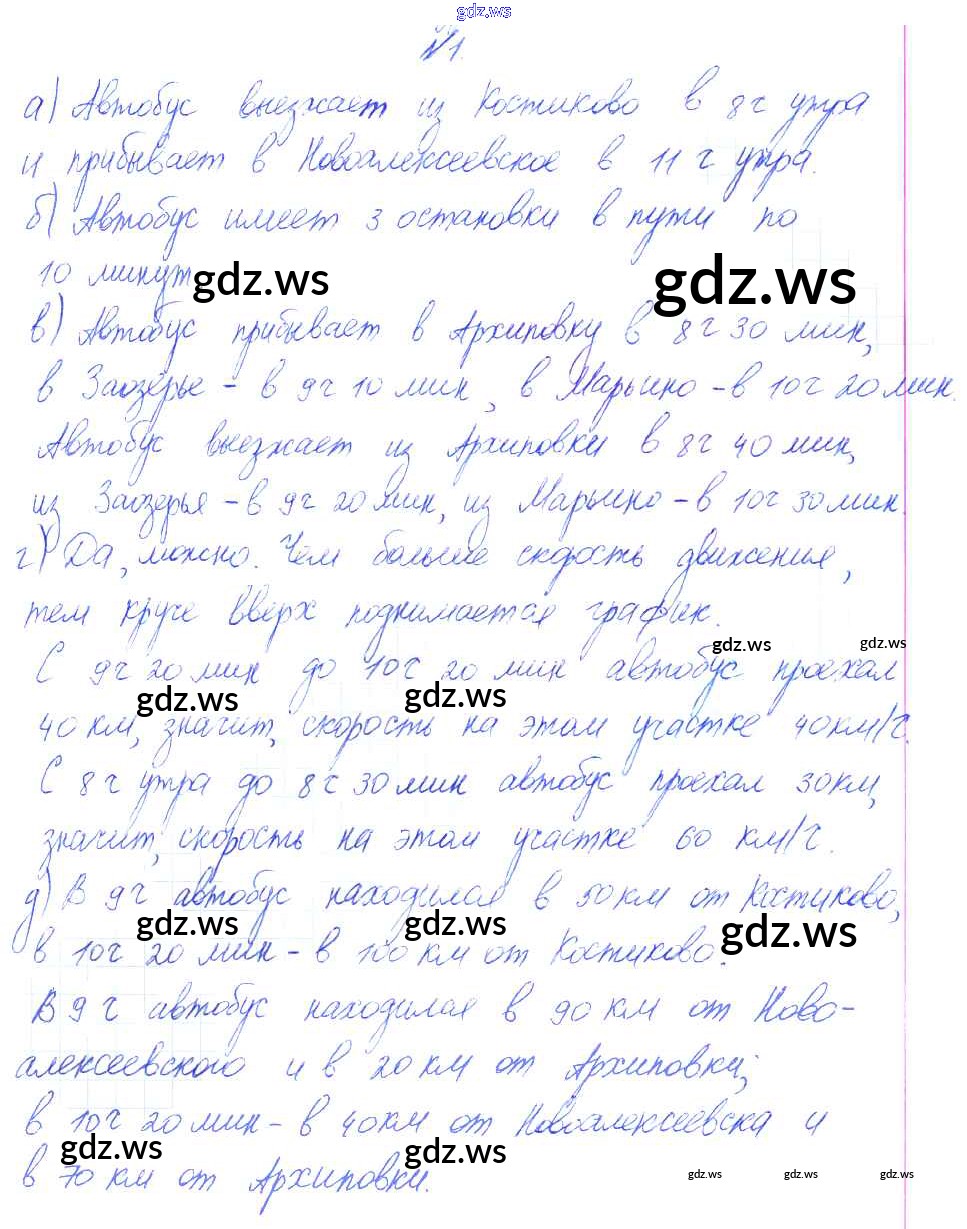 gdz.ws
№1.
а) Автобус выезжает из Костиково в 8 г утра
и прибывает в Новоалексеевское в 11 г утра.
б) Автобус имеет 3 остановки в пути по
10 минут
gdz.ws gdz.ws
в) Автобус прибывает в Архиповку в 8 г 30 мин,
в Заозерье - в 9 г 10 мин, в Марьино - в 10 г 20 мин.
Автобус выезжает из Архиповки в 8 г 40 мин,
из Заозерья - в 9 г 20 мин, из Марьино - в 10 г 30 мин.
г) Да, можно. Чем больше скорость движения,
тем круче вверх поднимается график.
gdz.ws gdz.ws
С 9 г 20 мин до 10 г 20 мин автобус проехал
gdz.ws gdz.ws
40 км, значит, скорость на этом участке 40 км/г.
С 8 г утра до 8 г 30 мин автобус проехал 30 км,
значит, скорость на этом участке 60 км/г.
д) В 9 г автобус находился в 50 км от Костиково,
gdz.ws gdz.ws gdz.ws
в 10 г 20 мин - в 100 км от Костиково.
В 9 г автобус находился в 90 км от Ново-
алексеевского и в 20 км от Архиповки;
в 10 г 20 мин - в 40 км от Новоалексеевска и
gdz.ws gdz.ws
в 70 км от Архиповки.
gdz.ws gdz.ws gdz.ws